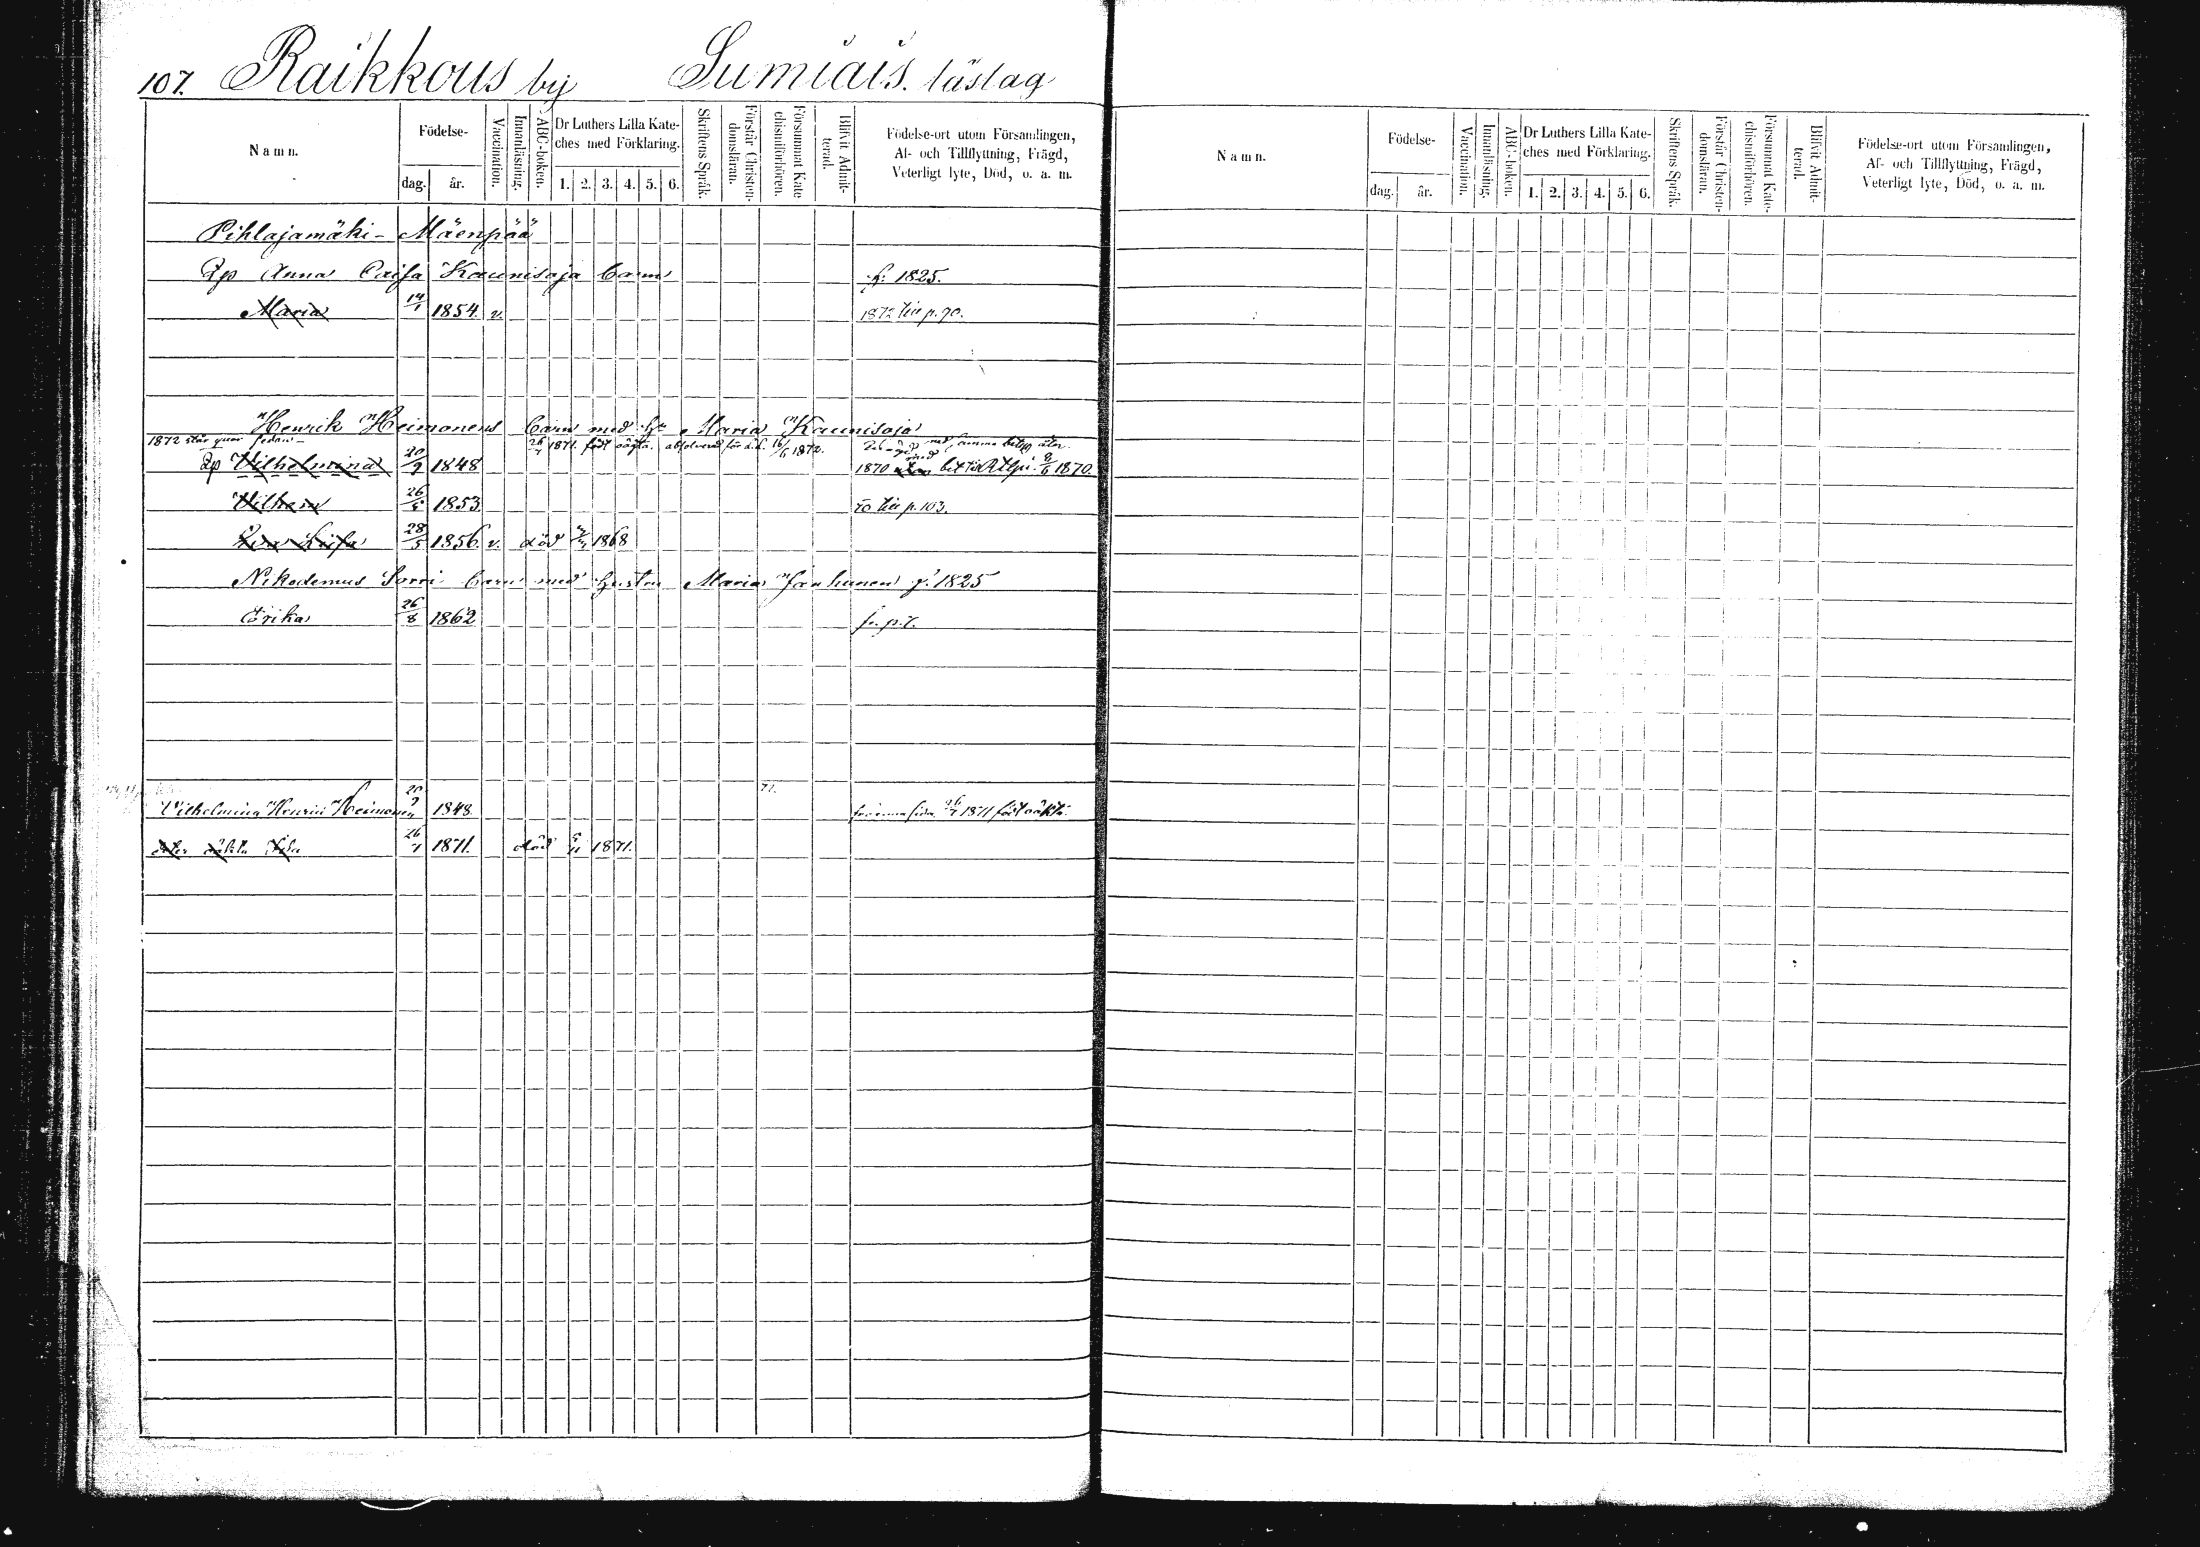 107. Raikkous by Sumiais. läslag
Namn. Födelse- dag. år. Vaccination. Innanläsning. ABC-boken. Dr Luthers Lilla Kate- ches med Förklaring. 1. 2. 3. 4. 5. 6. Skriftens Språk. Förstår Christen- domsläran. Försummat Kate- chismiförhören. Blifvit Admit- terad. Födelse-ort utom Församlingen, Af- och Tillflyttning, Frägd, Veterligt lyte, Död, o. a. m.
Pihlajamäki - Mäenpää
Qp Anna Caisa Kaunisoja barn f: 1825.
Maria 14/1 1854. v. 1872 p. 90.
Henrik Heimonens barn med h. Maria Kaunisoja
1872 står quar sedan 26/1 1871 född oägta. absolverad 16/6 1872.
Qp Wilhelmina 20/9 1848 1870 8/6 1870.
Wilhem 26/5 1853. 70 p. 103.
28/5 1856. v. död 1868
Nikodemus Sorri barn med hustru Maria Janhunen f. 1825
Erika 26/8 1862 fr. p. 7.
Wilhelmina Henrici Heimonen 20/9 1848. 26/1 1871 född oäkta.
26/1 1871. död 1871.
Namn. Födelse- dag. år. Vaccination. Innanläsning. ABC-boken. Dr Luthers Lilla Kate- ches med Förklaring. 1. 2. 3. 4. 5. 6. Skriftens Språk. Förstår Christen- domsläran. Försummat Kate- chismiförhören. Blifvit Admit- terad. Födelse-ort utom Församlingen, Af- och Tillflyttning, Frägd, Veterligt lyte, Död, o. a. m.